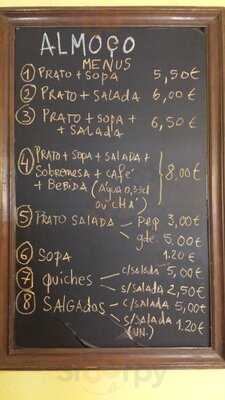 ALMOÇO
MENUS
1 PRATO + SOPA 5,50€
2 PRATO + SALADA 6,00€
3 PRATO + SOPA +
+ SALADA 6,50€
4 PRATO + SOPA + SALADA +
+ SOBREMESA + CAFÉ
+ BEBIDA (ÁGUA 0,33cl
OU CHÁ) 8,00€
5 PRATO SALADA — PEQ 3,00€
— gde. 5,00€
6 SOPA 1.20€
7 QUICHES — C/SALADA 5,00€
— S/SALADA 2,50€
8 SALGADOS — C/SALADA 5,00€
— S/SALADA 1.20€
(UN.)